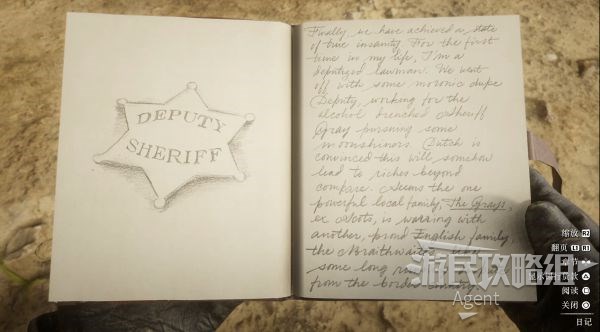 DEPUTY
SHERIFF
Finally, we have achieved a state
of true insanity. For the first
time in my life, I'm a
deputized lawman. We went
off with some moronic dupe
Deputy, working for the
alcohol drenched Sheriff
Gray pursuing some
moonshiners. Dutch is
convinced this will somehow
lead to riches beyond
compare. Seems the one
powerful local family, The Grays,
ex Scots, is warring with
another, proud English family,
the Braithwaites
some long
from the border
游民攻略组
Agent
缩放 R2
翻页 L1 R1
章节
阅读
关闭
日记